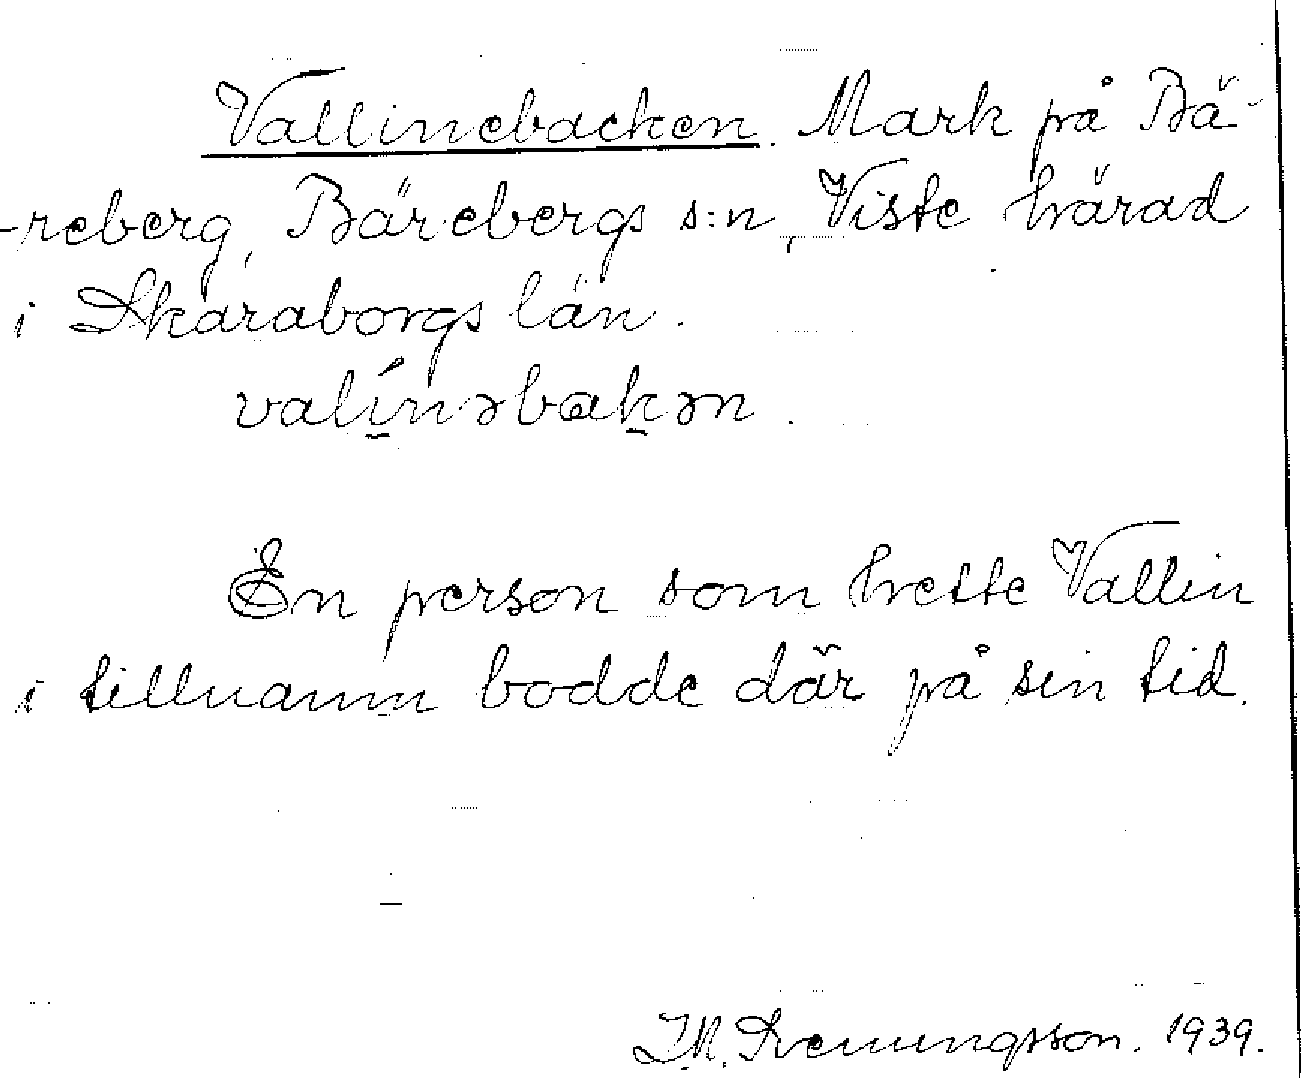 Vallinebacken. Mark på Bä-
-reberg, Bärebergs s:n, Viste härad
i Skaraborgs län.
valínəbakən.
En person som hette Vallin
i tillnamn bodde där på sin tid.
1939.